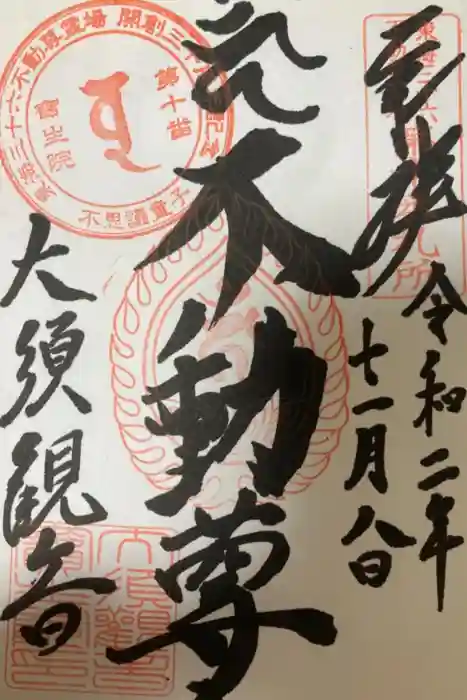 奉拝
令和二年
十一月八日
不動尊
大須観音
東海三十六不動尊霊場
第十番
寶生院
不思議童子